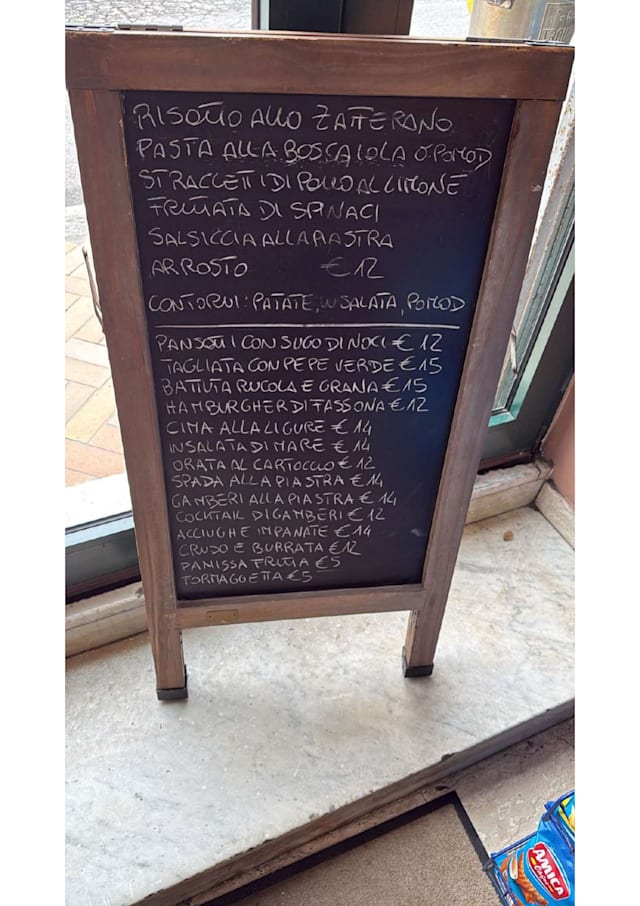 RISOTTO ALLO ZAFFERANO
PASTA ALLA BOSCAIOLA O POMOD
STRACCETTI DI POLLO AL LIMONE
FRITTATA DI SPINACI
SALSICCIA ALLA PIASTRA
ARROSTO €12
CONTORNI: PATATE, INSALATA, POMOD
PANSOTTI CON SUGO DI NOCI €12
TAGLIATA CON PEPE VERDE €15
BATTUTA RUCOLA E GRANA €15
HAMBURGHER DI FASSONA €12
CIMA ALLA LIGURE €14
INSALATA DI MARE €14
ORATA AL CARTOCCIO €12
SPADA ALLA PIASTRA €14
GAMBERI ALLA PIASTRA €14
COCKTAIL DI GAMBERI €12
ACCIUGHE IMPANATE €14
CRUDO E BURRATA €12
PANISSA FRITTA €5
FORMAGGETTA €5
AMICA